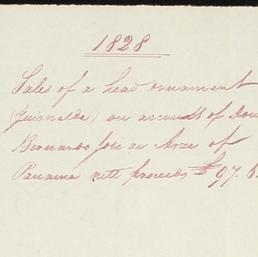 1828
Sales of a head ornament
(Guirnalda) on account of Don
Bernardo José de Arze of
Panama nett proceeds $97.6